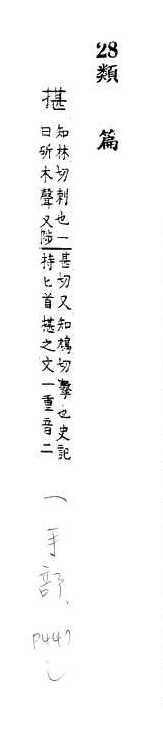 28類篇
揕
知林切刺也一
曰斫木聲又陟
甚切又知鴆切擊也史記
持匕首揕之文一重音二
(手部、P447)